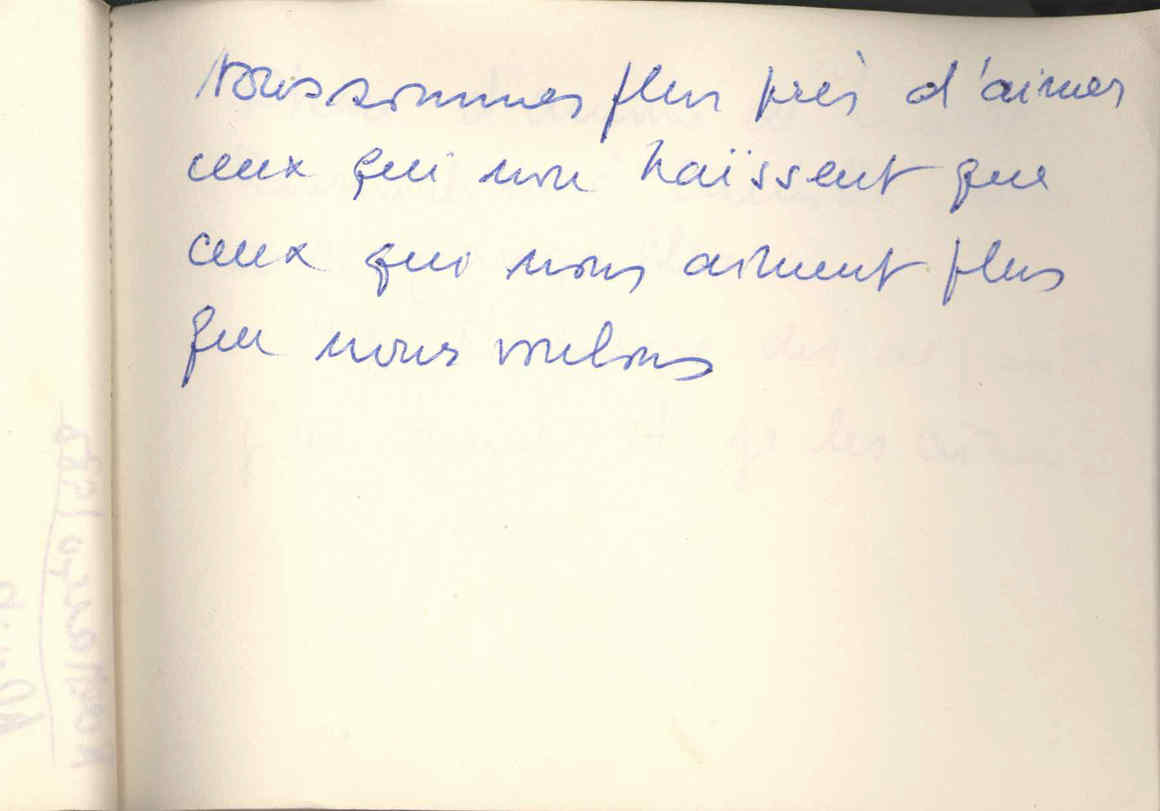 Nous sommes plus près d'aimer
ceux qui nou haïssent que
ceux qui nous aiment plus
que nous voulons